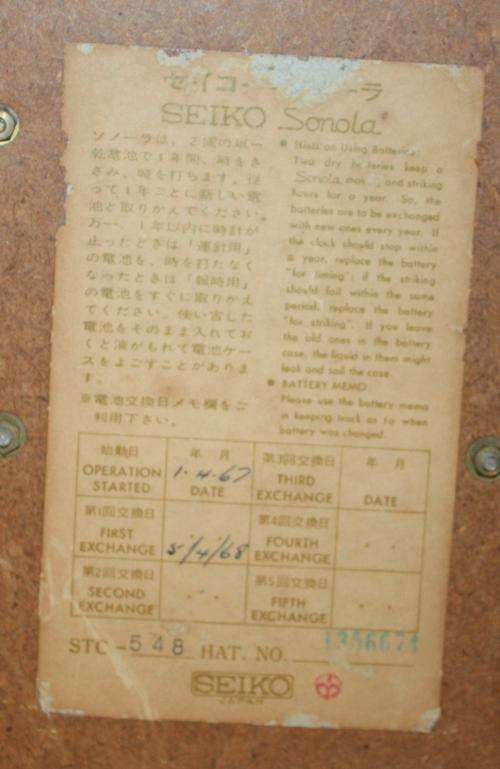 セイコー
ーラ
SEIKO Sonola
ソノーラは、2個の単一
乾電池で1年間、時をき
ざみ、時を打ちます。従
って1年ごとに新しい電
池と取りかえてください。
万一、1年以内に時計が
止ったときは「運針用」
の電池を、時を打たなく
なったときは「報時用」
の電池をすぐに取りかえ
てください。使い古した
電池をそのまま入れてお
くと液がもれて電池ケー
スをよごすことがありま
す。
※電池交換日メモ欄をご
利用下さい。
● Hints on Using Batteries:
Two dry batteries keep a
Sonola and striking
hours for a year. So, the
batteries are to be exchanged
with new ones every year. If
the clock should stop within
a year, replace the battery
"for timing"; if the striking
should fail within the same
period, replace the battery
"for striking". If you leave
the old ones in the battery
case, the liquid in them might
leak and soil the case.
● BATTERY MEMO
Please use the battery memo
in keeping track as to when
battery was changed.
始動日
OPERATION
STARTED
年 月
1·4·67
DATE
第3回交換日
THIRD
EXCHANGE
年 月
DATE
第1回交換日
FIRST
EXCHANGE
5/4/68
第4回交換日
FOURTH
EXCHANGE
第2回交換日
SECOND
EXCHANGE
第5回交換日
FIFTH
EXCHANGE
STC -548 HAT. NO.
SEIKO
JAPAN